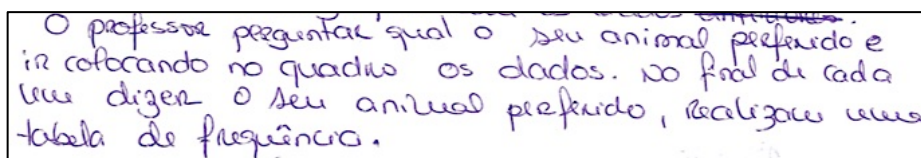 O professor perguntar qual o seu animal preferido e
ir colocando no quadro os dados. No final de cada
um dizer o seu animal preferido, realizam uma
tabela de frequência.